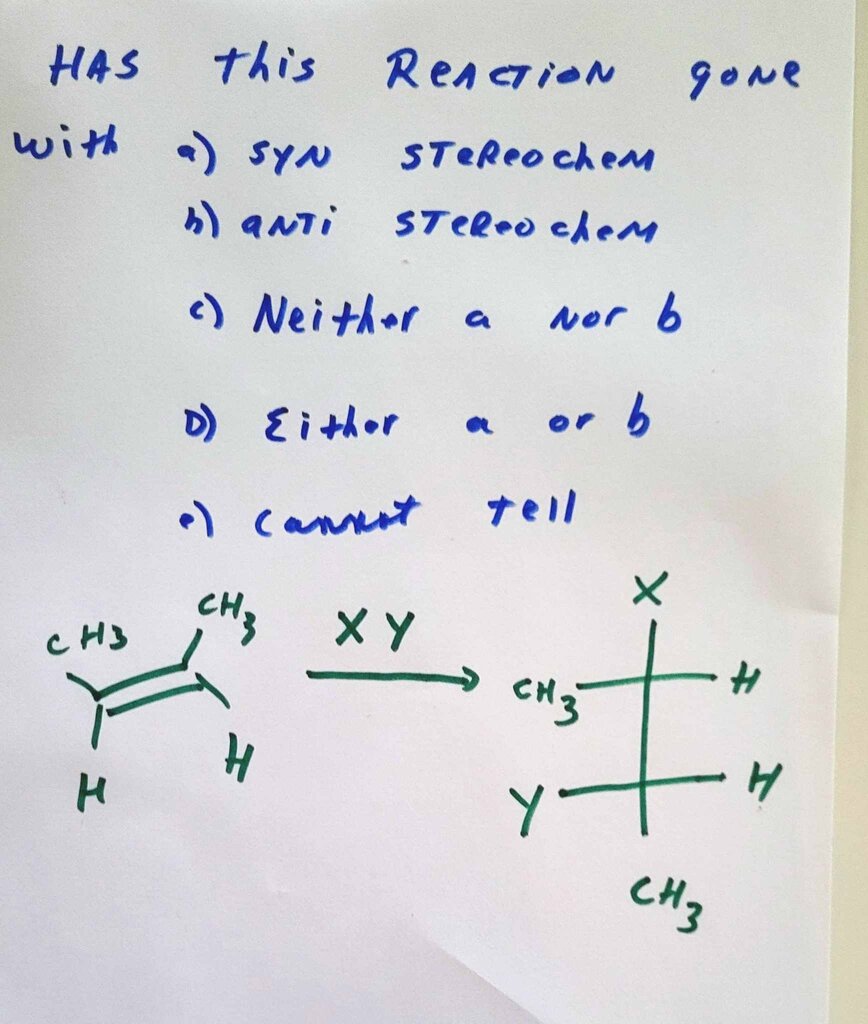 HAS this REACTION gone
with a) SYN STeReochem
b) aNTi STeReochem
c) Neither a nor b
D) Either a or b
e) cannot tell
CH3 CH3 XY X
CH3 H
H H Y H
CH3